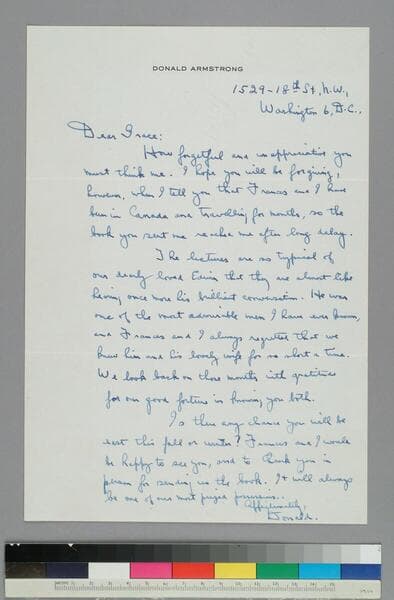 DONALD ARMSTRONG
1529-18th St, N.W.,
Washington 6, D.C.,
Dear Grace:
How forgetful and unappreciative you
must think me. I hope you will be forgiving,
however, when I tell you that Frances and I have
been in Canada and travelling for months, so the
book you sent me reached me after long delay.
The lectures are so typical of
our dearly loved Edwin that they are almost like
having once more his brilliant conversation. He was
one of the most admirable men I have ever known,
and Frances and I always regretted that we
knew him and his lovely wife for so short a time.
We look back on those months with gratitude
for our good fortune in knowing you both.
Is there any chance you will be
east this fall or winter? Frances and I would
be happy to see you, and to thank you in
person for sending us the book. It will always
be one of our most prized possessions.
Affectionately,
Donald.